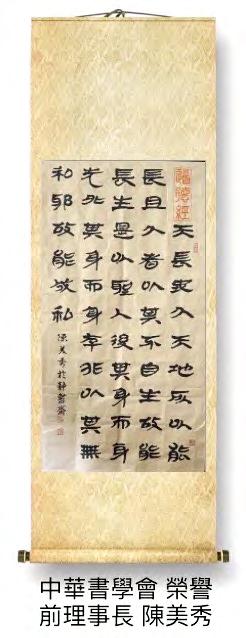 道德經
天長地久天地所以能
長且久者以其不自生故能
長生是以聖人後其身而身
先外其身而身存非以其無
私邪故能成私
陳美秀於靜齋
中華書學會 榮譽
前理事長 陳美秀